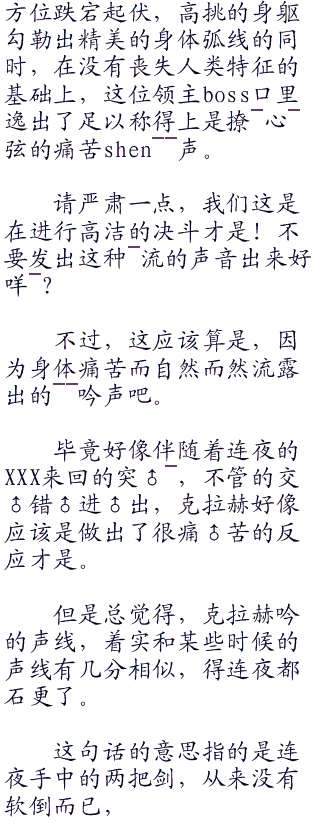 方位跌宕起伏，高挑的身躯
勾勒出精美的身体弧线的同
时，在没有丧失人类特征的
基础上，这位领主boss口里
逸出了足以称得上是撩¯心¯
弦的痛苦shen¯¯声。
请严肃一点，我们这是
在进行高洁的决斗才是！不
要发出这种¯流的声音出来好
咩¯？
不过，这应该算是，因
为身体痛苦而自然而然流露
出的¯¯吟声吧。
毕竟好像伴随着连夜的
XXX来回的突♂¯，不管的交
♂错♂进♂出，克拉赫好像
应该是做出了很痛♂苦的反
应才是。
但是总觉得，克拉赫吟
的声线，着实和某些时候的
声线有几分相似，得连夜都
石更了。
这句话的意思指的是连
夜手中的两把剑，从来没有
软倒而已，